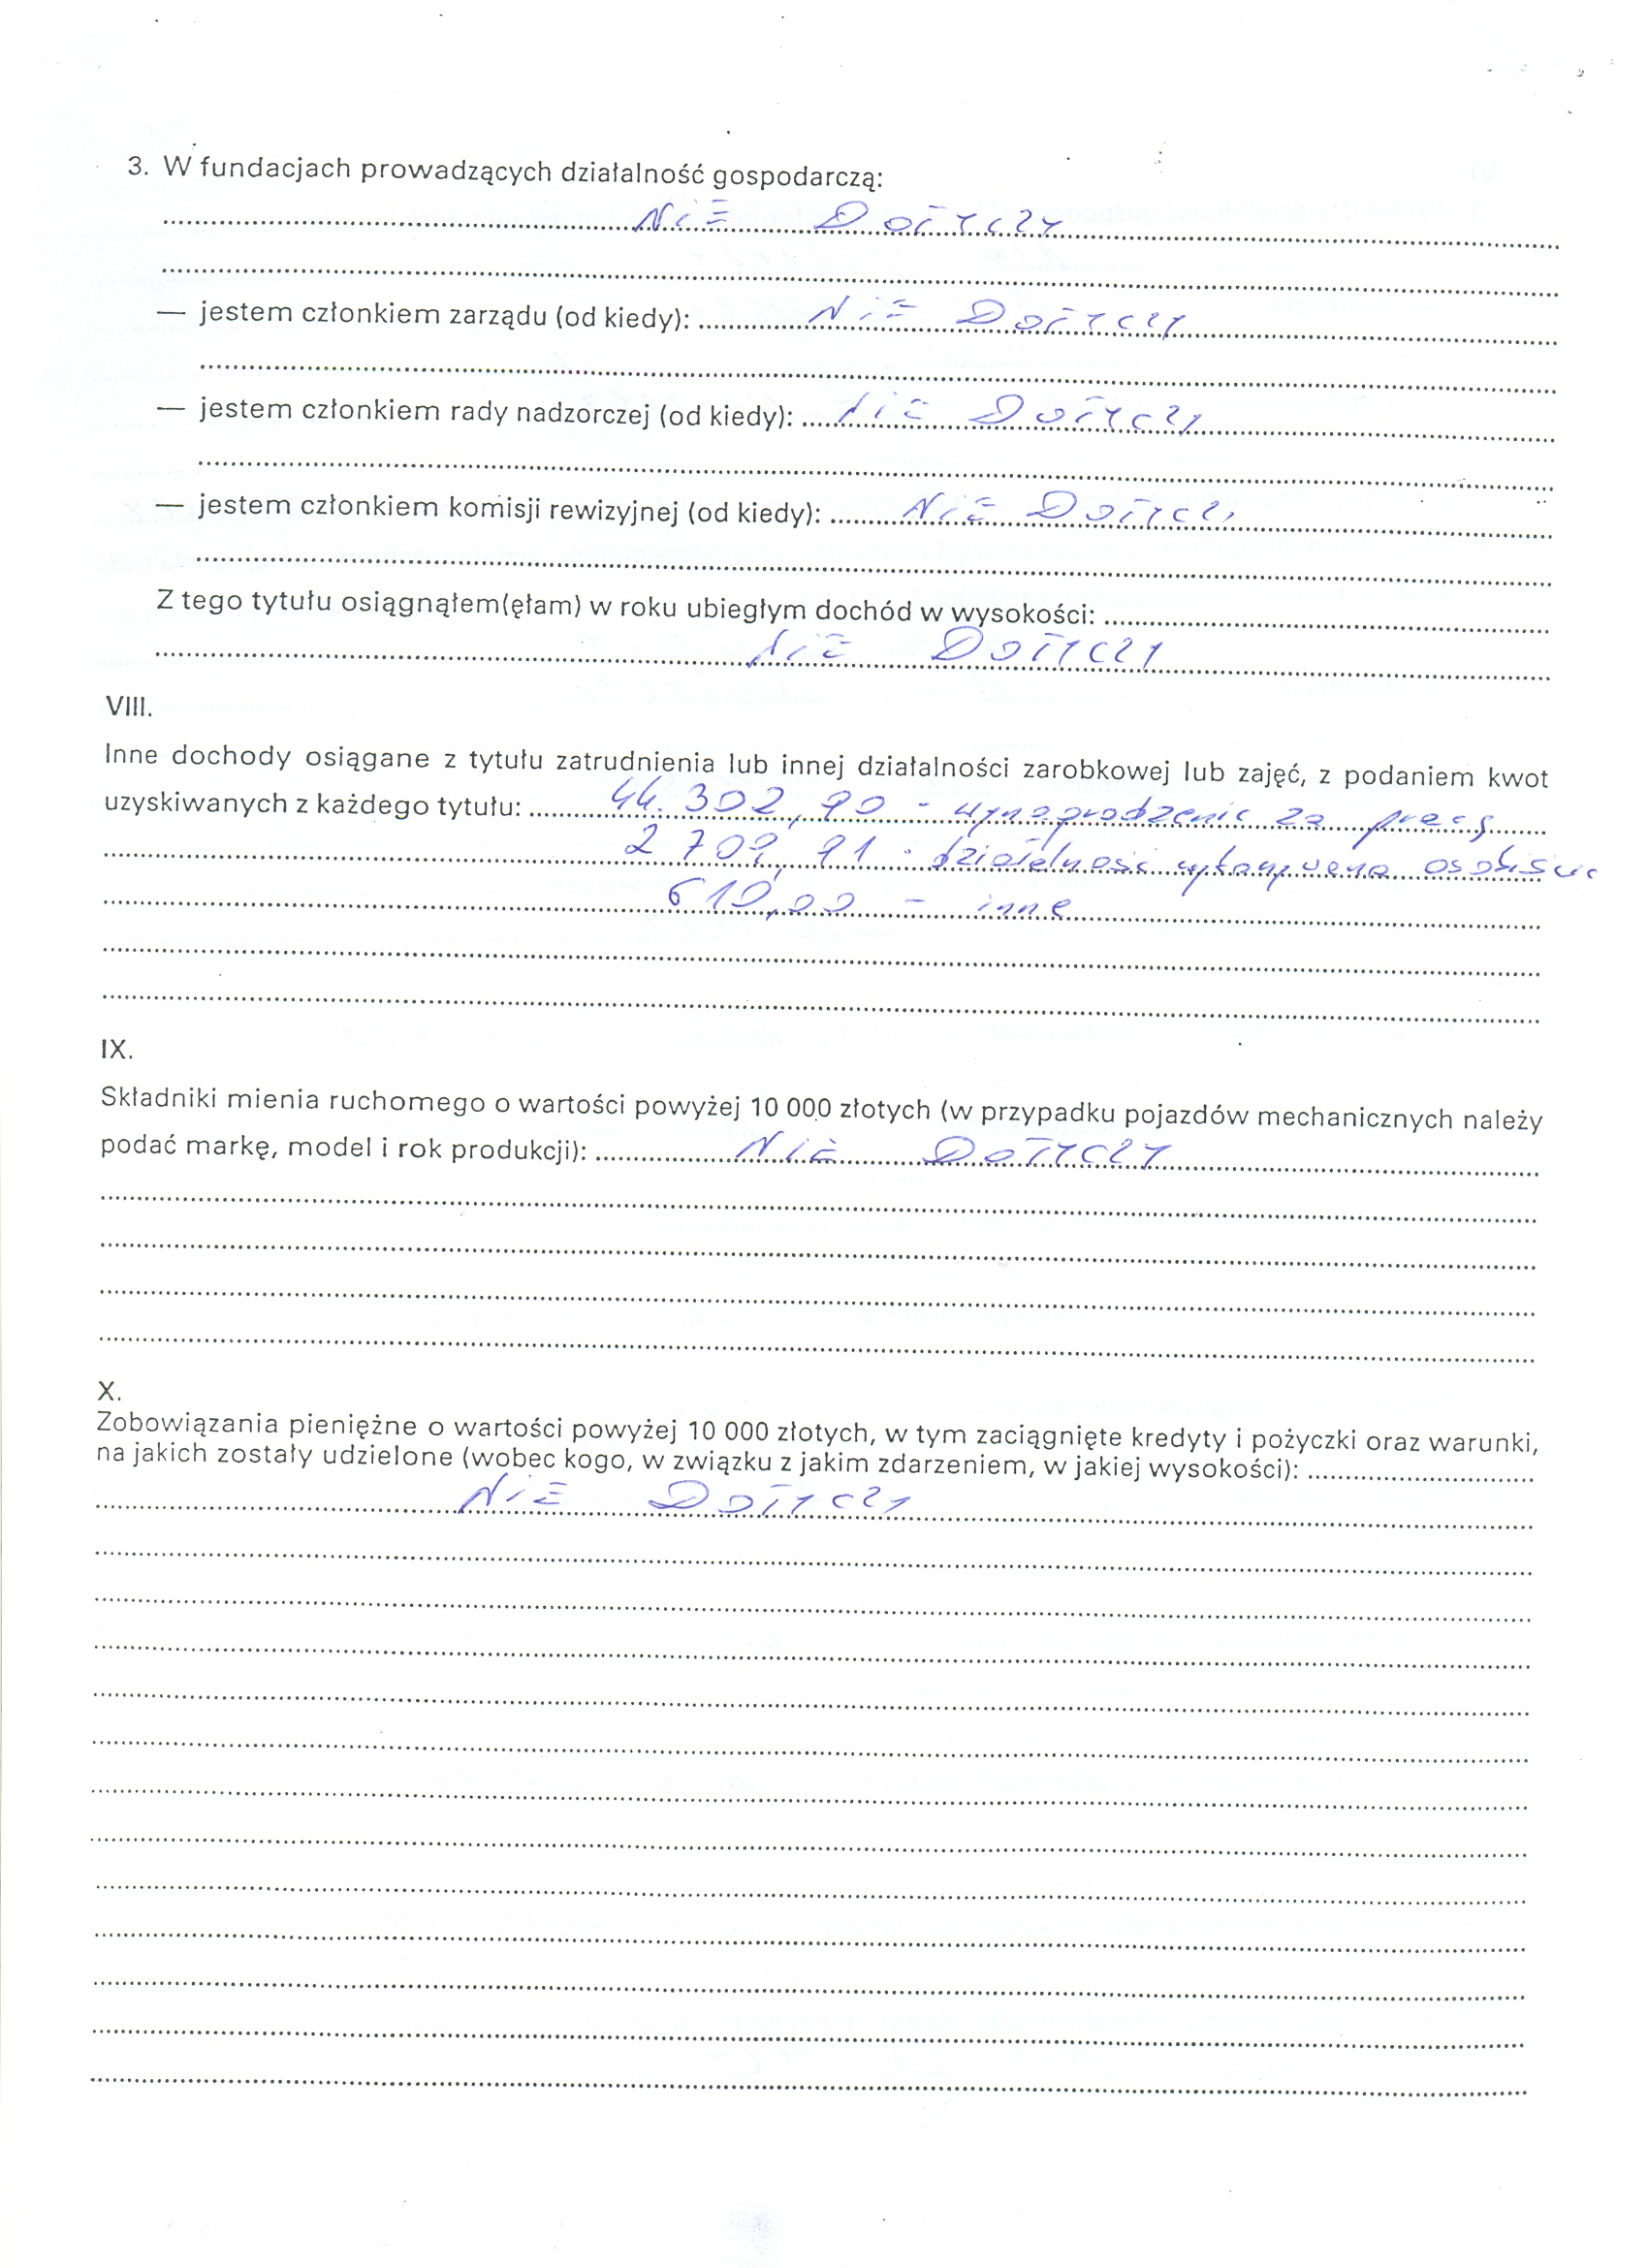 3. W fundacjach prowadzących działalność gospodarczą:
NiE DOTYCZY
— jestem członkiem zarządu (od kiedy): NiE DOTYCZY
— jestem członkiem rady nadzorczej (od kiedy): NiE DOTYCZY
— jestem członkiem komisji rewizyjnej (od kiedy): NiE DOTYCZY
Z tego tytułu osiągnąłem(ęłam) w roku ubiegłym dochód w wysokości:
NiE DOTYCZY
VIII.
Inne dochody osiągane z tytułu zatrudnienia lub innej działalności zarobkowej lub zajęć, z podaniem kwot
uzyskiwanych z każdego tytułu: 44.302,90 - wynagrodzenie za pracę
2 709,91 - działalność wykonywana osobiście
610,00 - inne
IX.
Składniki mienia ruchomego o wartości powyżej 10 000 złotych (w przypadku pojazdów mechanicznych należy
podać markę, model i rok produkcji): NiE DOTYCZY
X.
Zobowiązania pieniężne o wartości powyżej 10 000 złotych, w tym zaciągnięte kredyty i pożyczki oraz warunki,
na jakich zostały udzielone (wobec kogo, w związku z jakim zdarzeniem, w jakiej wysokości):
NiE DOTYCZY